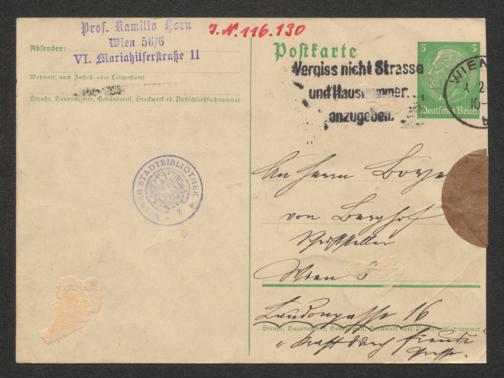 Prof. Kamillo Horn
Wien 56/6
VI. Mariahilferstraße 11
J.N. 116.130
Absender:
Wohnort, auch Zustell- oder Leitpostamt
Straße, Hausnummer, Gebäudeteil, Stockwerk od. Postschließfachnummer
WIENER STADTBIBLIOTHEK
Postkarte
5 5
Deutsches Reich
WIEN
Vergiss nicht Strasse
und Hausnummer
anzugeben.
An Herrn
von Berghof
Schriftsteller
Wien
Laudongasse 16
Straße, Hausnummer,
"Kraft durch Freude"